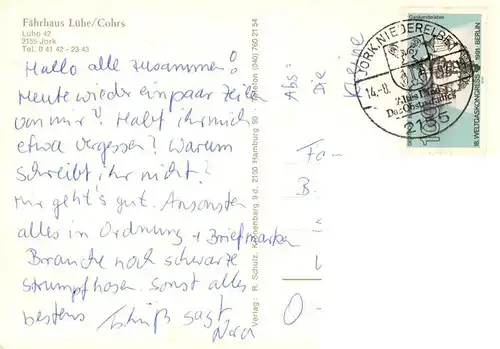 Fährhaus Lühe/Cohrs
Lühe 42
2155 Jork
Tel. 0 41 42 - 23 43
Hallo alle zusammen!
Heute wieder ein paar Zeilen
von mir? Habt ihr mich
etwa vergessen? Warum
schreibt ihr nicht?
Mir geht's gut. Ansonsten
alles in Ordnung + Briefmarken
Brauche noch schwarze
Strumpfhosen. Sonst alles
bestens Tschüß sagt
Nora
Verlag: R. Schulz, 9 d, 2160 Hamburg 90 Telefon (040) 760 21 54
Abs:
Die
Kleine
JORK, NIEDERELBE
14.-8.
Altes Land
Das Obstparadies
2155
Gaskandelaber
18. WELTGASKONGRESS 1991 BERLIN
100